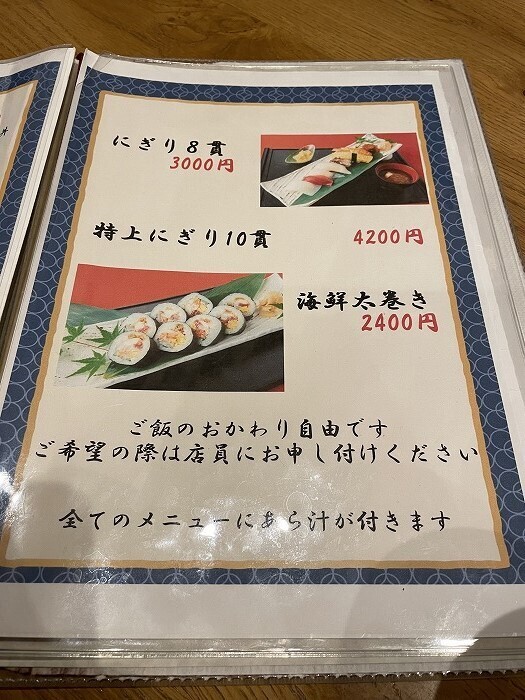 丼
にぎり8貫
3000円
特上にぎり10貫 4200円
海鮮太巻き
2400円
ご飯のおかわり自由です
ご希望の際は店員にお申し付けください
全てのメニューにあら汁が付きます